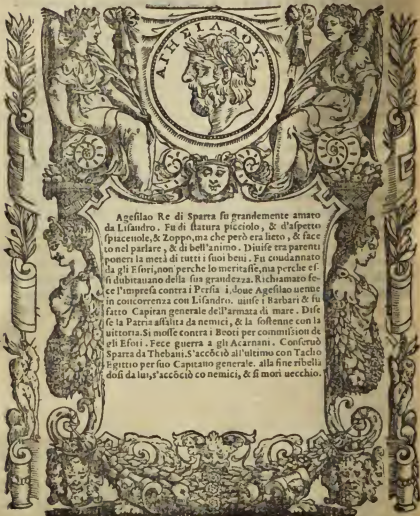 ΑΓΗΣΙΛΑΟΥ.
Agesilao Re di Sparta fu grandemente amato
da Lisandro. Fu di statura picciolo, & d'aspetto
spiaceuole, & Zoppo, ma che però era lieto, & face
to nel parlare, & di bell'animo. Diuise tra parenti
poueri la metà di tutti i suoi beni. Fu condannato
da gli Efori, non perche lo meritasse, ma perche es
si dubitauano della sua grandezza. Richiamato fe-
ce l'impresa contra i Persia i, doue Agesilao uenne
in concorrenza con Lisandro. uinse i Barbari & fu
fatto Capitan generale dell'armata di mare. Dife
se la Patria assalita da nemici, & la sostenne con la
uittoria. Si mosse contra i Beoti per commission de
gli Efori. Fece guerra a gli Acarnani. Conseruò
Sparta da Thebani. S'accōciò all'ultimo con Tacho
Egittio per suo Capitano generale. alla fine ribella
dosi da lui, s'accōciò co nemici, & si morì uecchio.